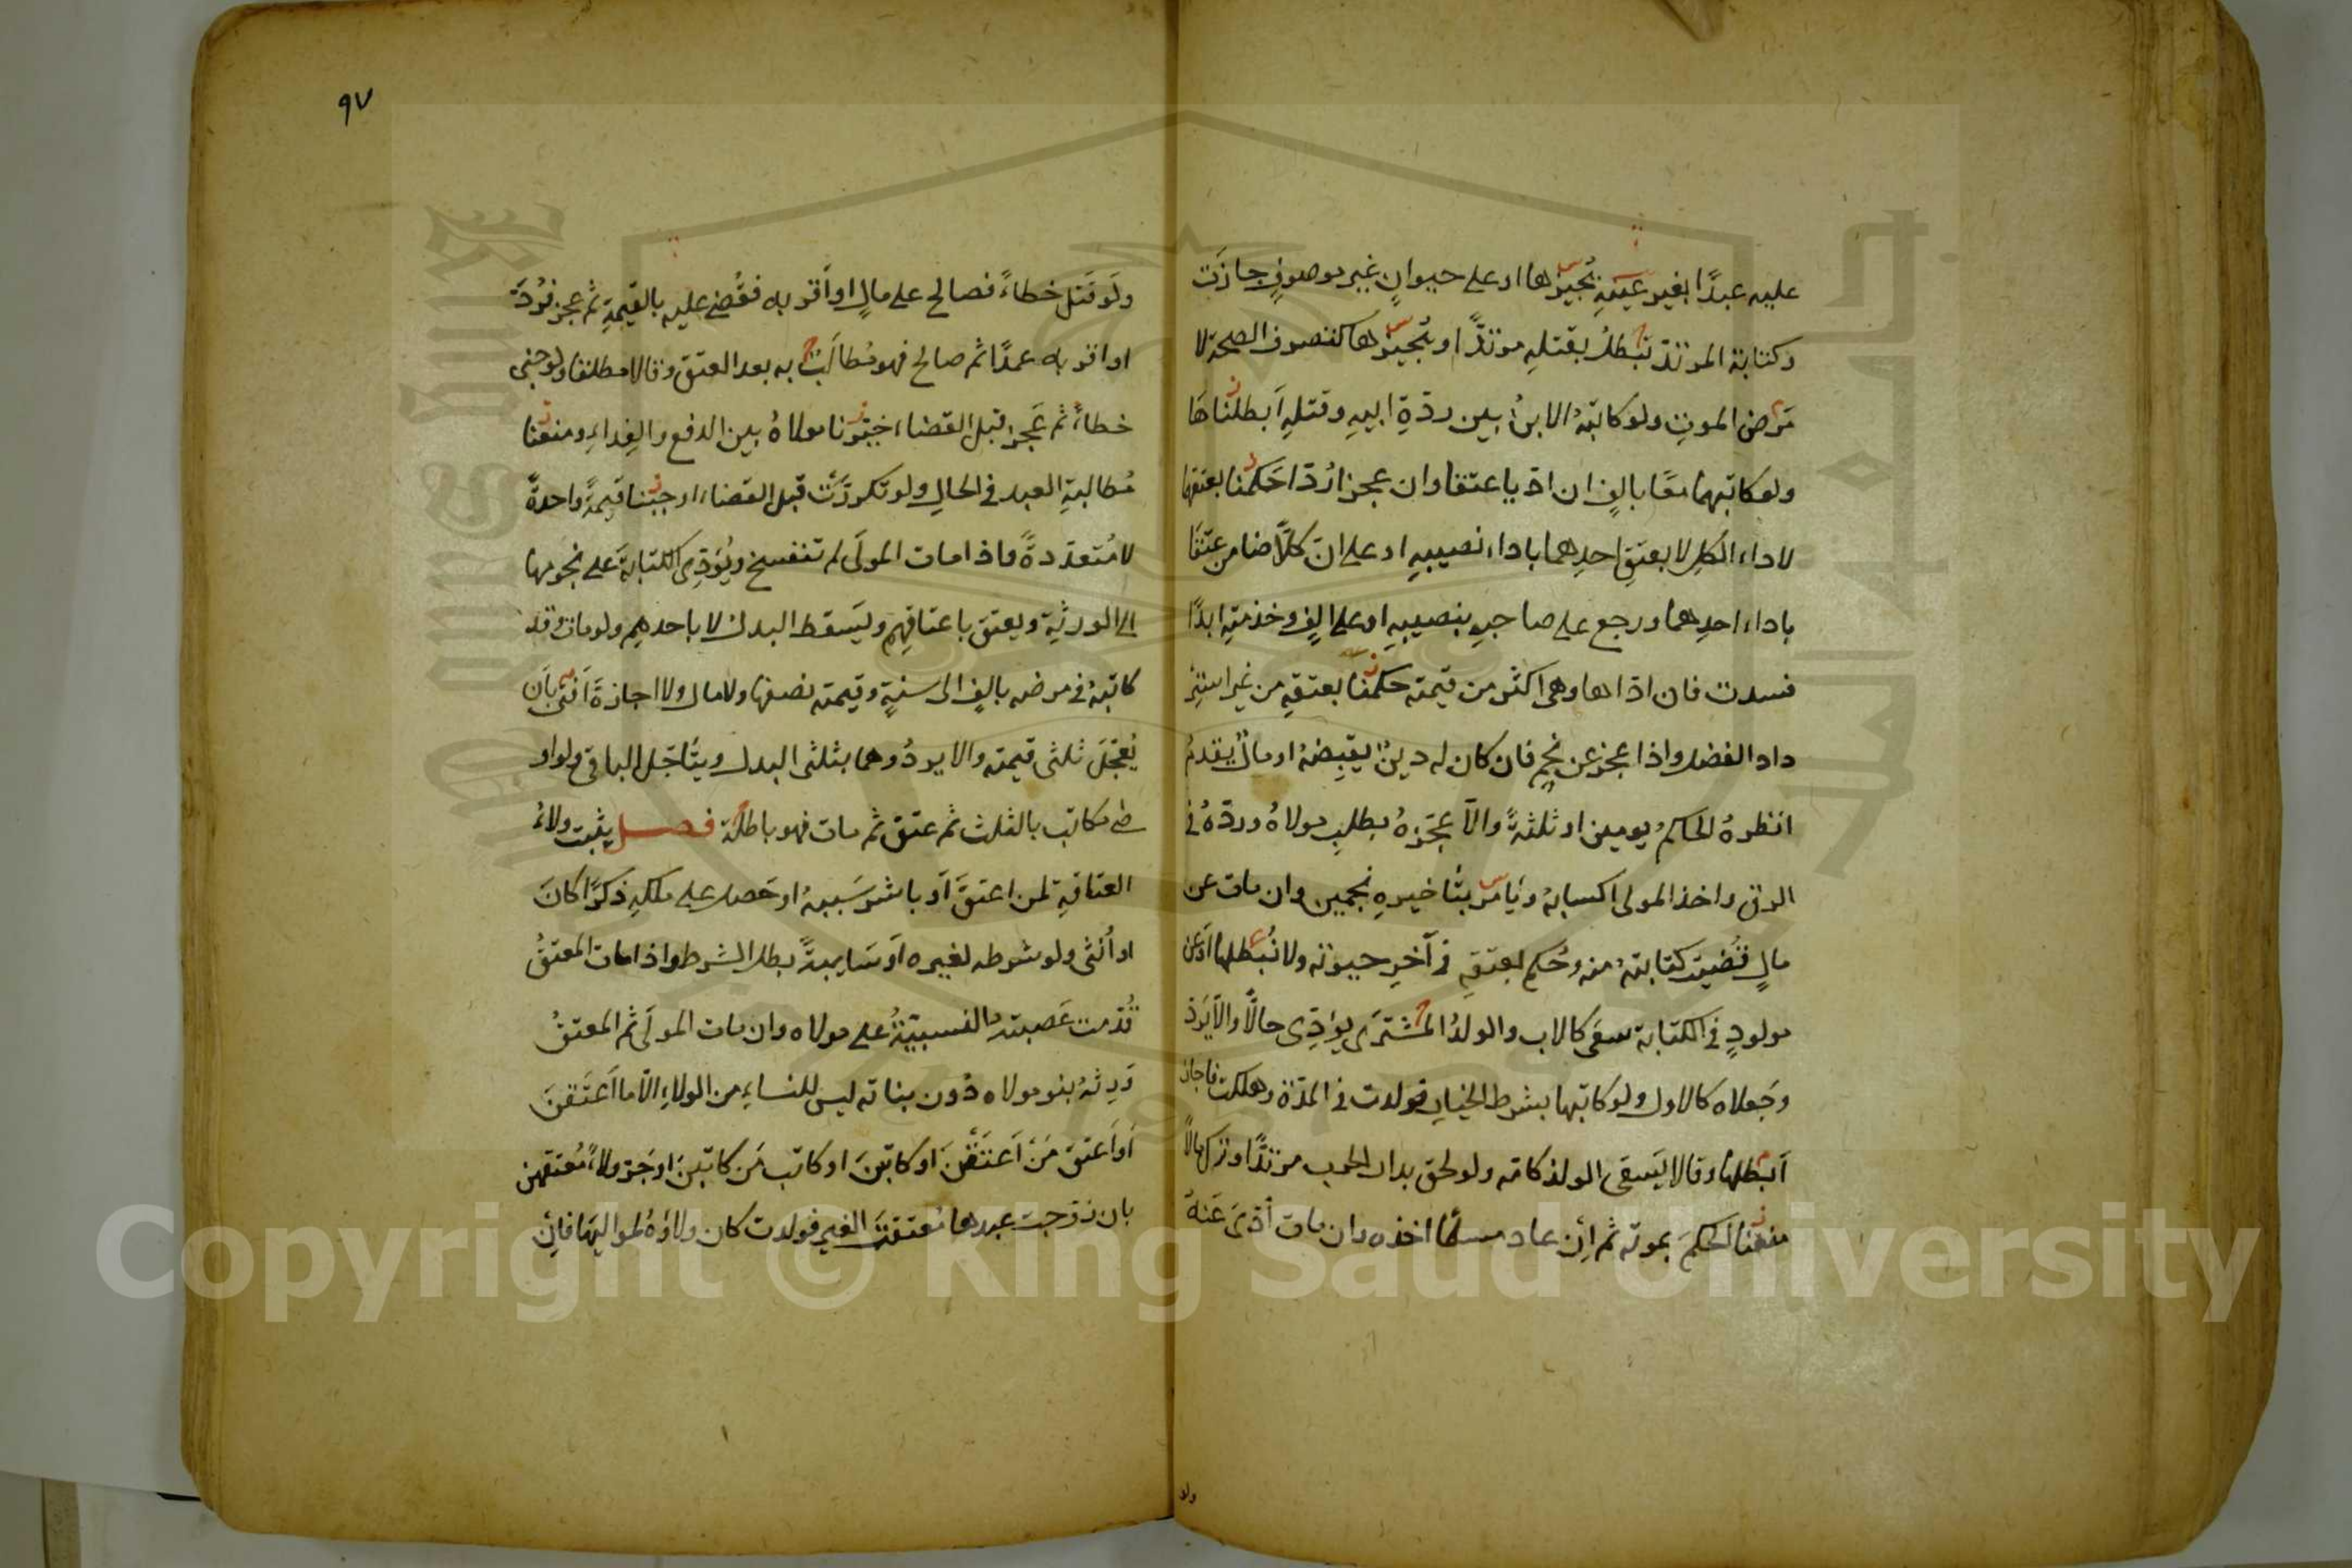 عليه عبدًا بغير عينه نُجيزها او على حيوانٍ غير موصوفٍ جازت
وكتابة المرتد تبطل بقتله مرتدًّا ونُجيزها كتصرف الصحة لا
مَرض الموت ولو كاتبهُ الابنُ بين ردّةِ ابيهِ وقتلهِ اَبطلناها
ولو كاتبهما معًا بالفٍ ان ادّيا عتقا وان عجزا رُدّا حَكمنا بعتقهما
لاداء الكل لا بعتقِ احدهما باداء نصيبهِ او على ان كلًّا ضامن عتقا
باداء احدِهما ورجع على صاحبهِ بنصيبهِ او على الفٍ وخدمتهِ ابدًا
فسدت فان ادّاها وهى اكثر من قيمته حكمنا بعتقهِ من غير استرداد
داد الفضل واذا عجز عن نجمٍ فان كان له دينٌ يقبضهُ او مالٌ يقدمُ
انظرهُ الحاكمُ يومين او ثلثةً والّا عجّزهُ بطلبِ مولاهُ وردّهُ فى
الرق واخذ المولى اكسابهُ ويأمر بتأخيرهِ نجمين وان مات عن
مالٍ قُضيت كتابتهُ منه وحُكم بعتقهِ فى آخرِ حيوته ولا نُبطلها او عن
مولودٍ فى الكتابة سعَى كالاب والولدُ المشترَى يؤدّى حالًّا والّا يُردّ
وجَعلاه كالاول ولو كاتبها بشرط الخيار فولدت فى المدّة وهلكت فاجاز
اَبطلها وقالا يَسعى الولد كامّه ولو لحق بدار الحرب مرتدًّا وترك مالًا
منعنا الحكمَ بموته ثم ان عاد مسلمًا اخذه وان مات اُدّىَ عَنهُ
ولو
٩٧
ولَو قتل خطاءً فصالح على مالٍ او اَقرّ به فقُضى عليه بالقيمةِ ثم عجز فرُدَّ
او اقرّ به عمدًا ثم صالح فهو مُطالَبٌ به بعد العتق وقالا مطلقا ولو جنى
خطاءً ثم عَجز قبل القضاء خيّرنا مولاهُ بين الدفع والفداءِ ومنعنا
مُطالبةِ العبد فى الحالِ ولو تكررَت قبل القضاء اوجبنا قيمةً واحدةً
لا مُتعدّدةً واذا مات المولَى لم تنفسخ ويُؤدّى الكتابةَ على نجومها
الى الورثةِ ويعتق باعتاقِهم ويَسقط البدل لا باحدهِم ولو مات وقد
كاتبهُ فى مرضه بالفٍ الى سنةٍ وقيمته نصفها ولا مال ولا اجازةَ اَفتى بان
يُعجّلَ ثلثى قيمته والا يردُّ وهما بثلثى البدل ويتأجّل الباقى ولو او
صى مكاتب بالثلث ثم عتق ثم مات فهو باطلة فصل يثبت ولاءُ
العتاقةِ لمن اعتقَ اَو باشر سَببهُ او حَصل على ملكهِ ذكرًا كانَ
او اُنثى ولو شرطه لغيره اَو سَايبةً بطل الشرط واذا مات المعتقُ
قُدّمت عَصبته النسبيّةُ على مولاه وان مات المولَى ثم المعتقُ
وَرِثهُ بنو مولاه دُون بناته ليس للنساءِ من الولاءِ الّا ما اَعتَقنَ
اَو اَعتقَ مَن اَعتَقنَ او كاتبنَ او كاتب مَن كاتبنَ او جَرّ ولاءَ مُعتقهن
بان زوّجت عبدها مُعتقةَ الغير فولدت كان ولاؤهُ لمواليها فان
Copyright © King Saud University